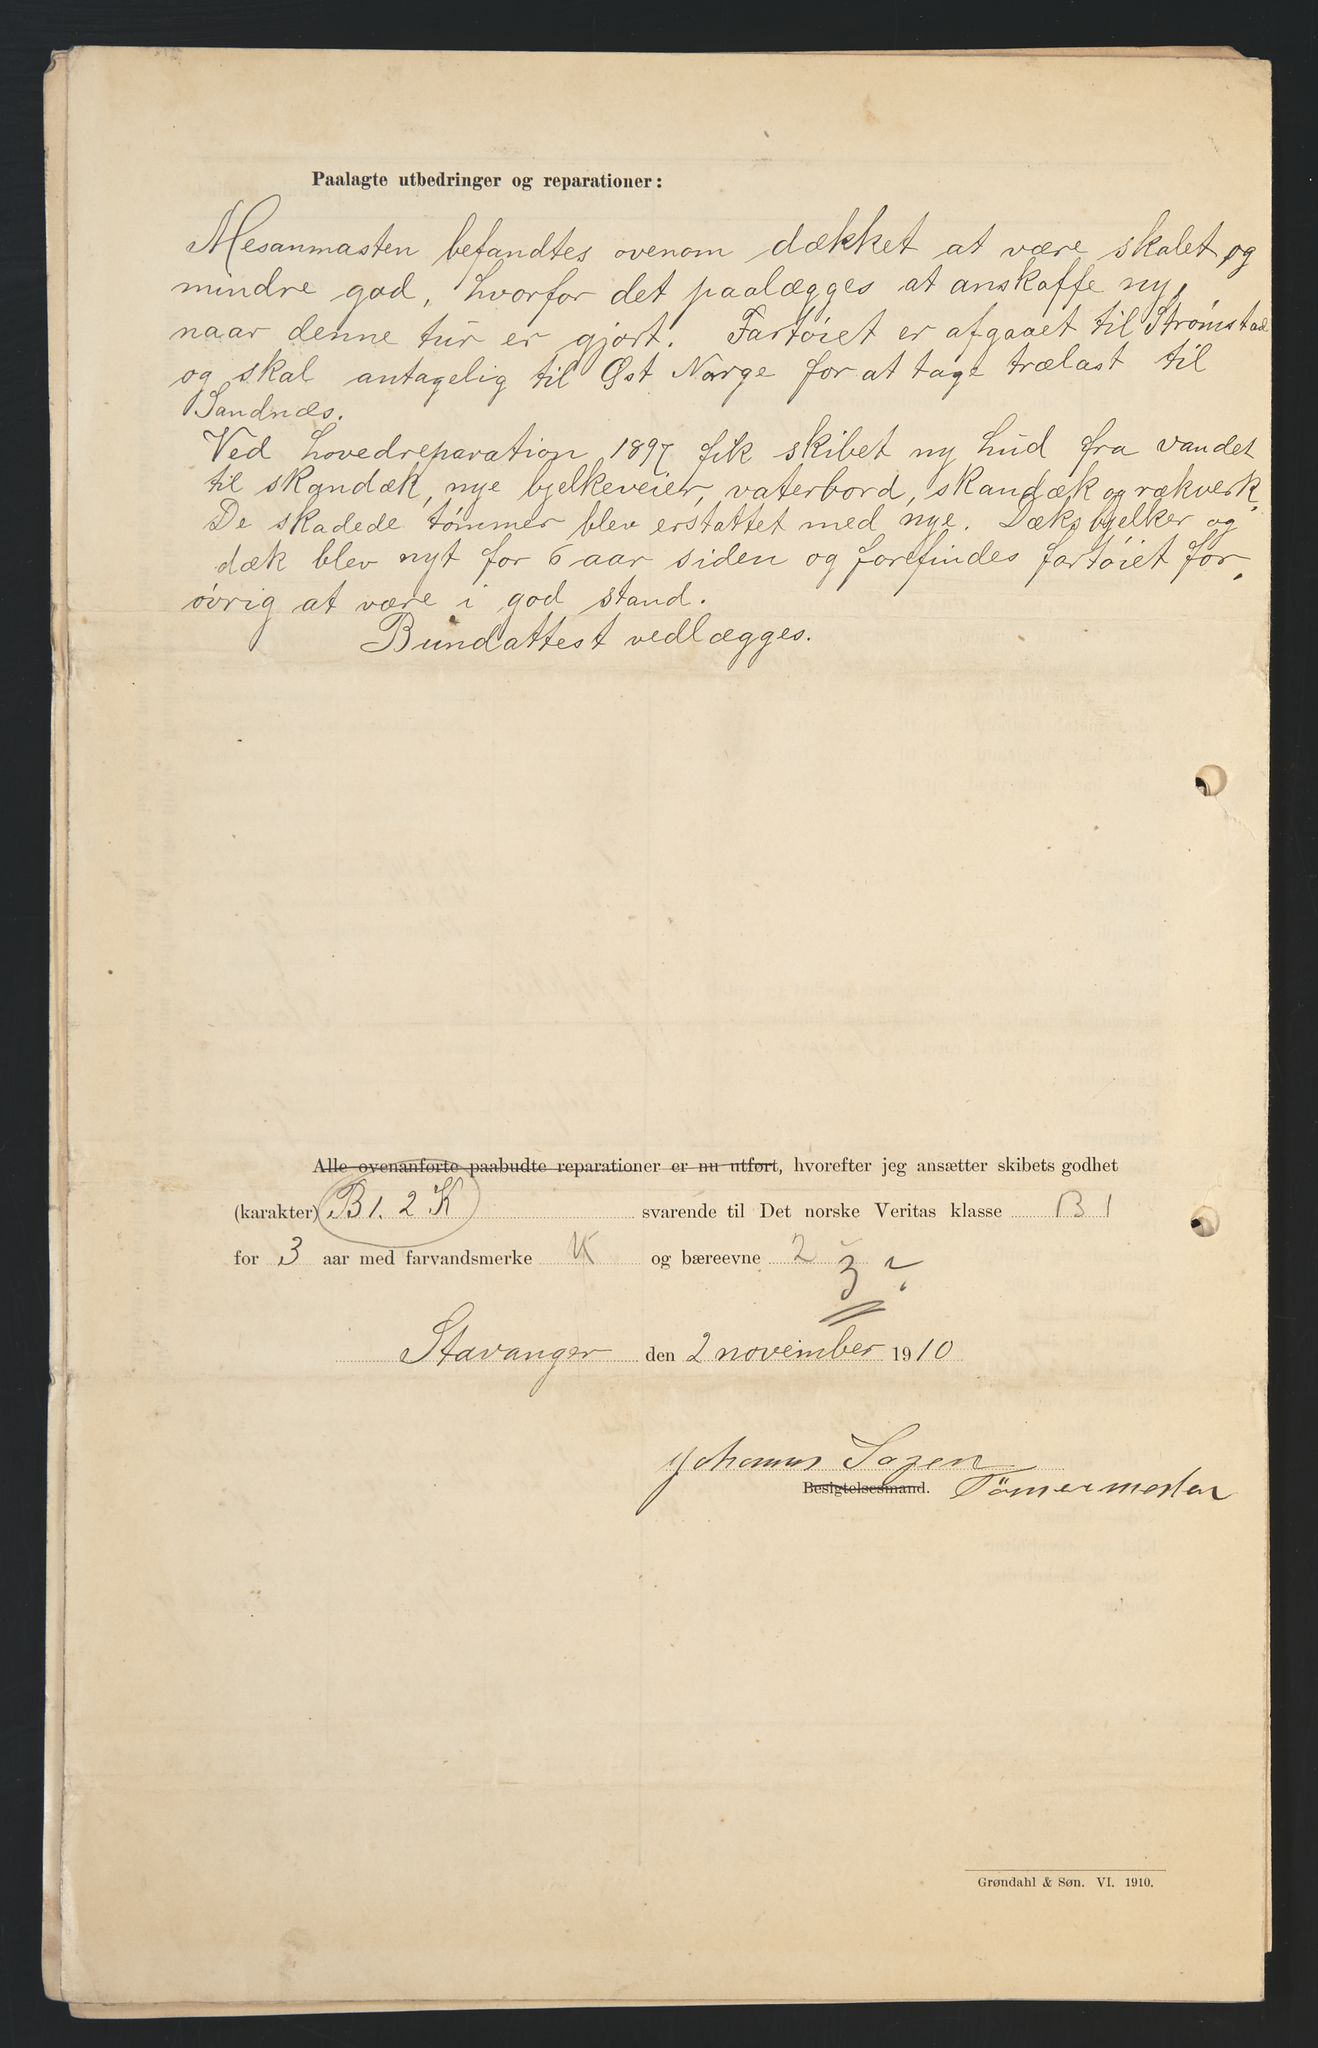 Paalagte utbedringer og reparationer:
Mesanmasten befandtes ovenom dækket at være skalet og
mindre god, hvorfor det paalægges at anskaffe ny,
naar denne tur er gjort. Fartöiet er afgaaet til Strömstad
og skal antagelig til Øst Norge for at tage trælast til
Sandnæs.
Ved hovedreparation 1897 fik skibet ny hud fra vandet
til skandæk, nye bjelkeveier, vaterbord, skandæk og rækverk.
De skadede tömmer blev erstattet med nye. Dæksbjelker og
dæk blev nyt for 6 aar siden og forefindes fartöiet for,
övrig at være i god stand.
Bundattest vedlægges.
Alle ovenanførte paabudte reparationer er nu utført, hvorefter jeg ansætter skibets godhet
(karakter) B 1. 2 K svarende til Det norske Veritas klasse B 1
for 3 aar med farvandsmerke K og bæreevne 2
3 ?
Stavanger den 2 november 1910
Johannes
Besigtelsesmand. Tömmermester
Grøndahl & Søn. VI. 1910.